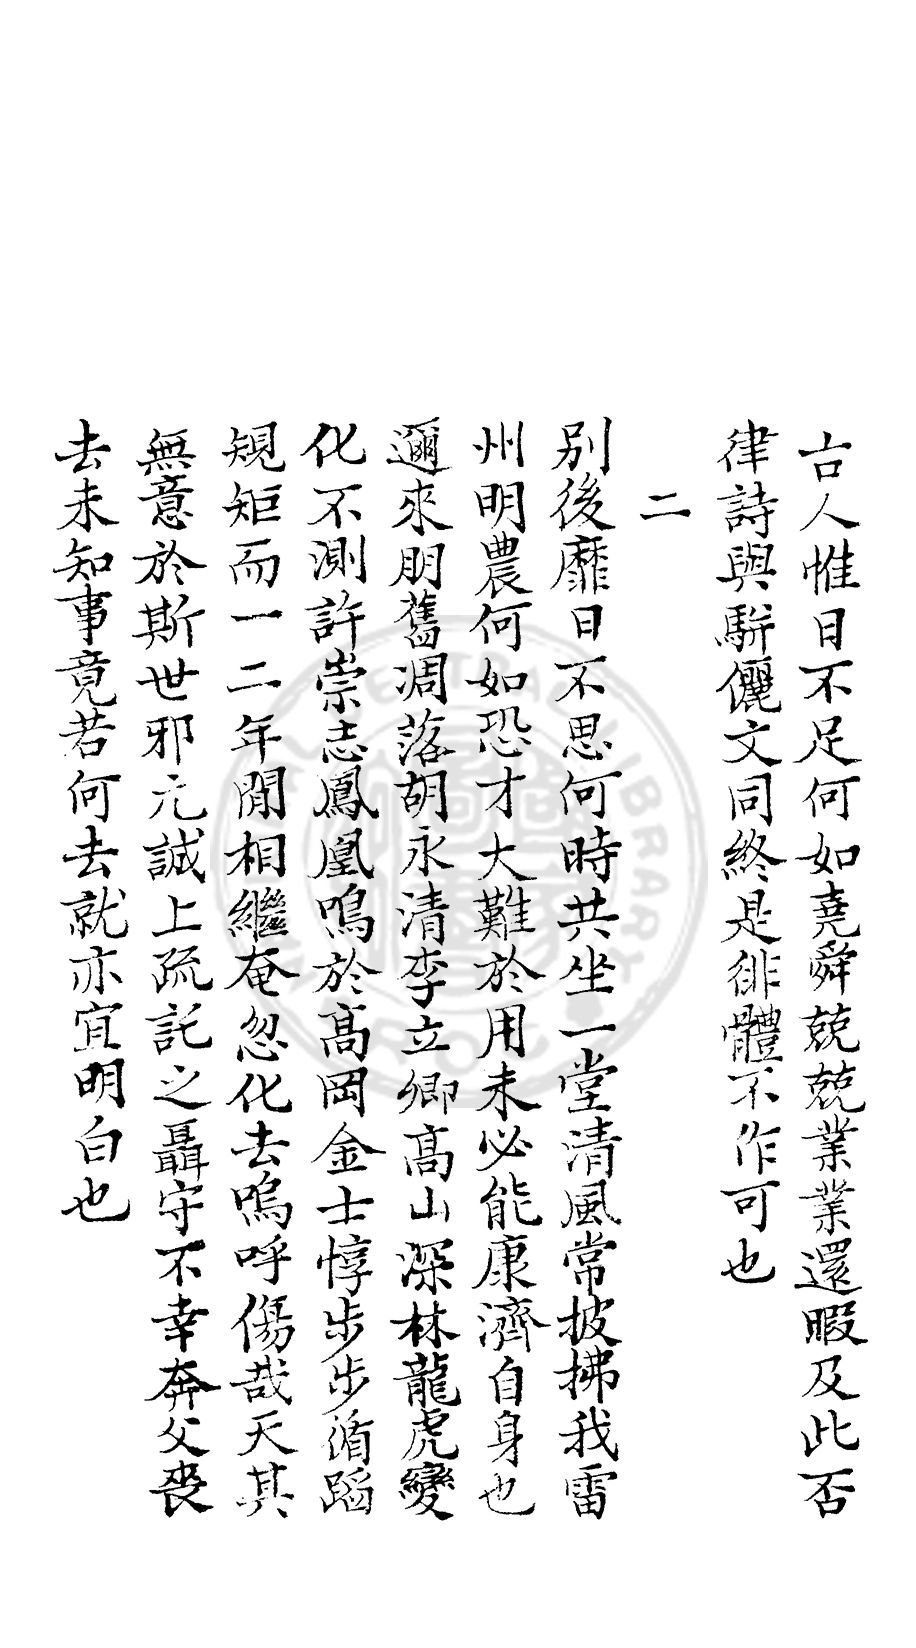 古人惟日不足何如堯舜兢兢業業還暇及此否
律詩與駢儷文同終是俳體不作可也
二
別後靡日不思何時共坐一堂清風常披拂我雷
州明農何如恐才大難於用未必能康濟自身也
邇來朋舊凋落胡永清李立卿髙山深林龍虎變
化不測許崇志鳳凰鳴於髙岡金士惇步步循蹈
規矩而一二年閒相繼奄忽化去嗚呼傷哉天其
無意於斯世邪元誠上疏託之聶守不幸奔父喪
去未知事竟若何去就亦宜明白也